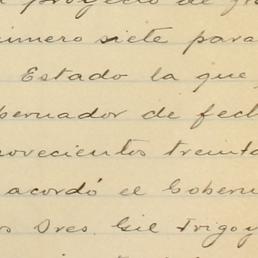 proyecto de
primero siete para
Estado la que
bernador de fech
novecientos treinta
acordó el Gobern
os Dres. Gil Trigo y